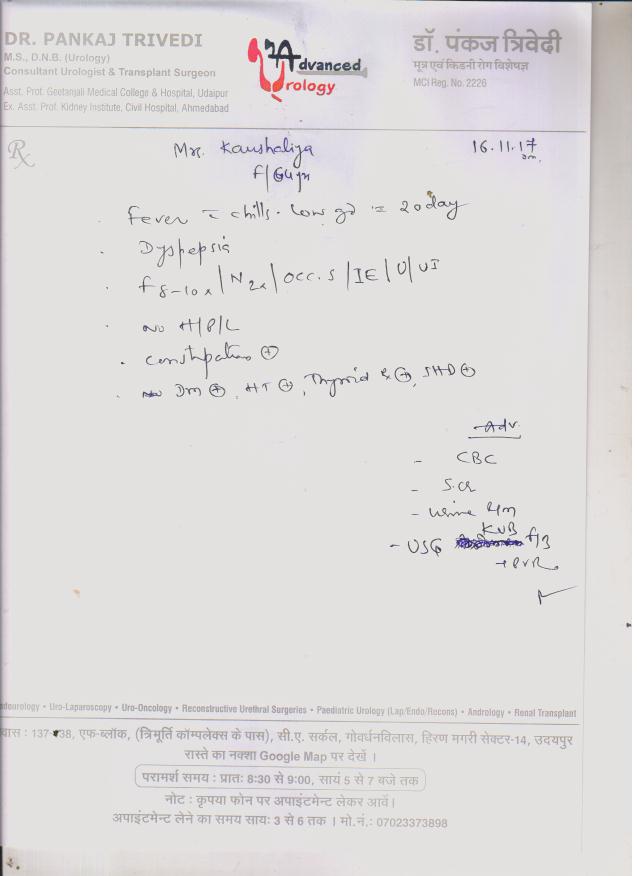 DR. PANKAJ TRIVEDI
M.S., D.N.B. (Urology)
Consultant Urologist & Transplant Surgeon
Asst. Prof. Geetanjali Medical College & Hospital, Udaipur
Ex. Asst. Prof. Kidney Institute, Civil Hospital, Ahmedabad
Advanced
Urology
डॉ. पंकज त्रिवेदी
मूत्र एवं किडनी रोग विशेषज्ञ
MCI Reg. No. 2226
Rx
Mrs. Kaushaliya
16.11.17
F/64yr
Fever c chills. low gd = 20day
Dyspepsia
F8-10x/N2x/occ.S/IE/U/UI
no H/P/L
Constipation ⊕
Dm ⊕, HT ⊕, Thyroid ⊕, IHD ⊕
Adv.
- CBC
- S.Cr
- Urine R/M
- USG KUB F/B
+PVR
ndourology • Uro-Laparoscopy • Uro-Oncology • Reconstructive Urethral Surgeries • Paediatric Urology (Lap/Endo/Recons) • Andrology • Renal Transplant
वास : 137-138, एफ-ब्लॉक, (त्रिमूर्ति कॉम्पलेक्स के पास), सी.ए. सर्कल, गोवर्धनविलास, हिरण मगरी सेक्टर-14, उदयपुर
रास्ते का नक्शा Google Map पर देखें ।
परामर्श समय : प्रातः 8:30 से 9:00, सायं 5 से 7 बजे तक
नोट : कृपया फोन पर अपाइंटमेन्ट लेकर आवें।
अपाइंटमेन्ट लेने का समय सायः 3 से 6 तक । मो.नं.: 07023373898